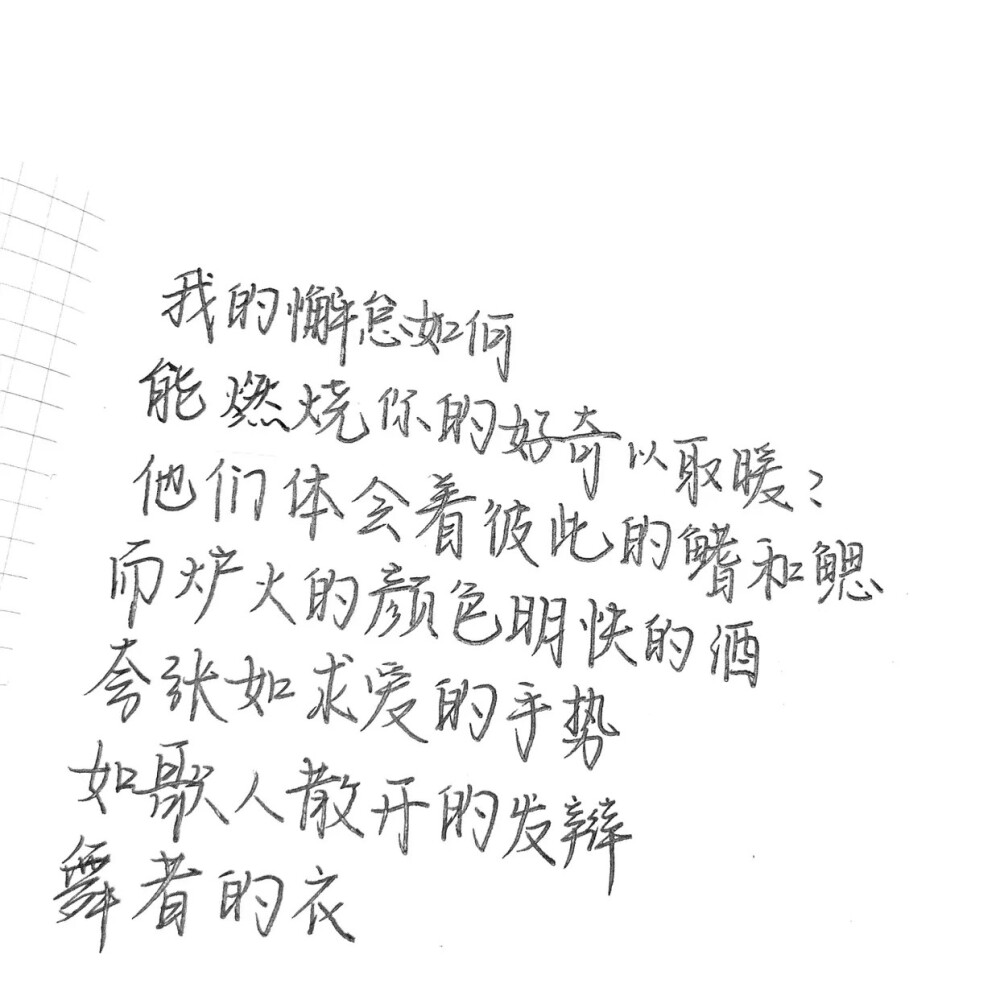 我的懈怠如何
能燃烧你的好奇以取暖?
他们体会着彼此的鳍和鳃
而炉火的颜色明快的酒
夸张如求爱的手势
如歌人散开的发辫
舞者的衣